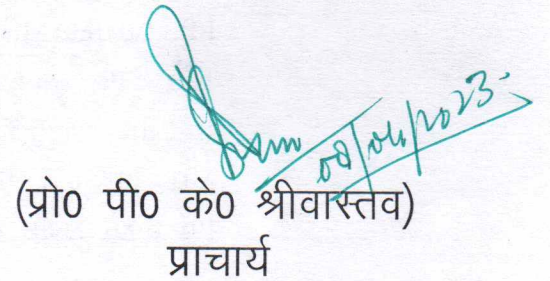 08/04/2023
(प्रो0 पी0 के0 श्रीवास्तव)
प्राचार्य